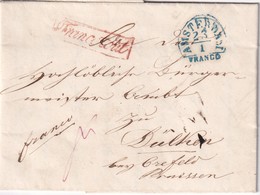 AMSTERDAM
23
1
FRANCO
Franco
Hochlöbliche Bürger-
meister Amte
zu
Dülken
bey Crefeld
franco
Preussen